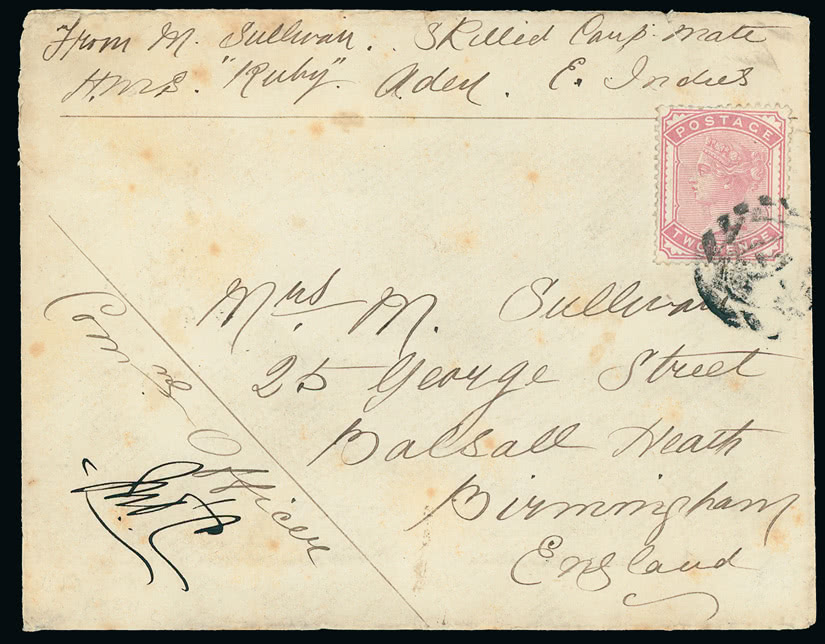 From M. Sullivan. Skilled Carp. mate
H.M.S. "Ruby". Aden. E. Indies
POSTAGE
TWO PENCE
Mrs M. Sullivan
25 George Street
Balsall Heath
Birmingham
England
Officer